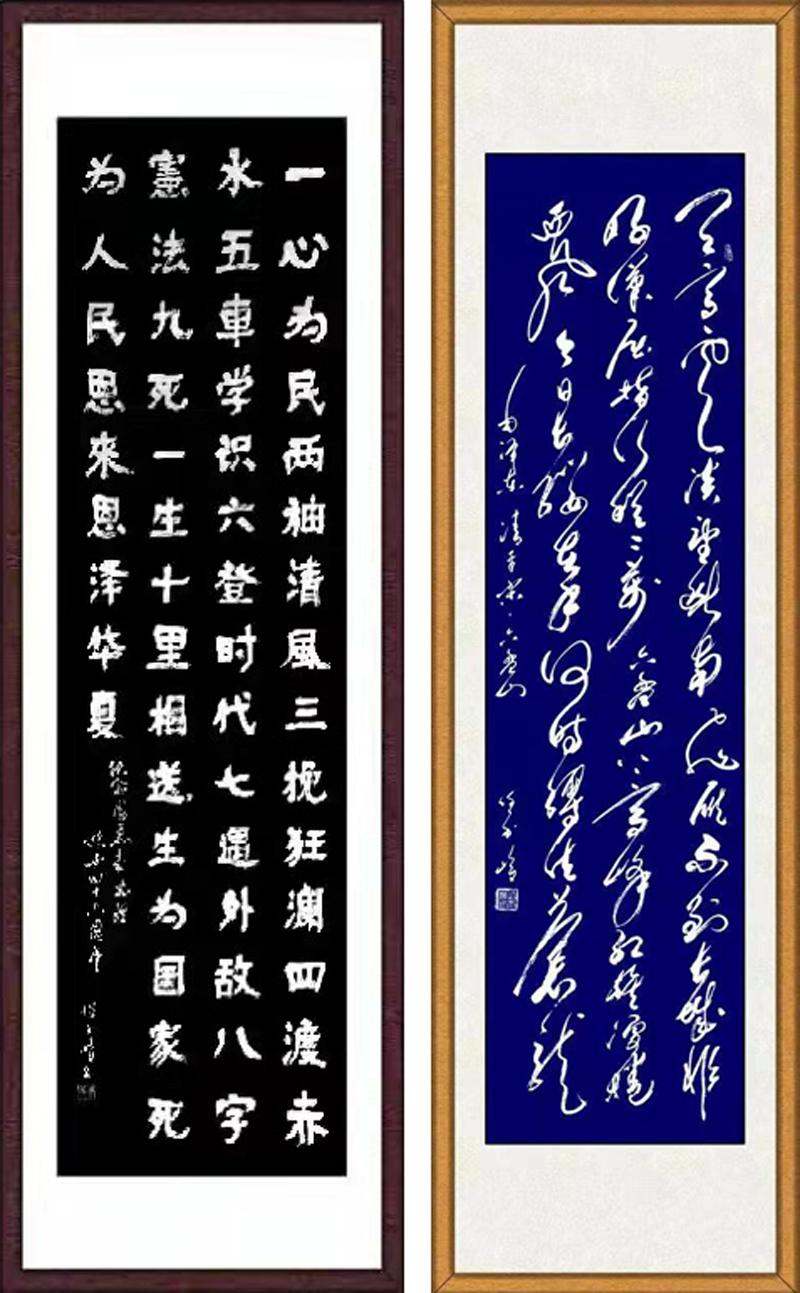 一心为民两袖清風三挽狂澜四渡赤
水五車学识六登时代七遇外敌八字
憲法九死一生十里相送生为国家死
为人民恩来恩泽华夏
天高雲淡望断南飛雁不到长城非
好漢屈指行程二萬六盘山上高峰红旗漫捲
西風今日长缨在手何时缚住蒼龍
毛泽东清平乐·六盘山